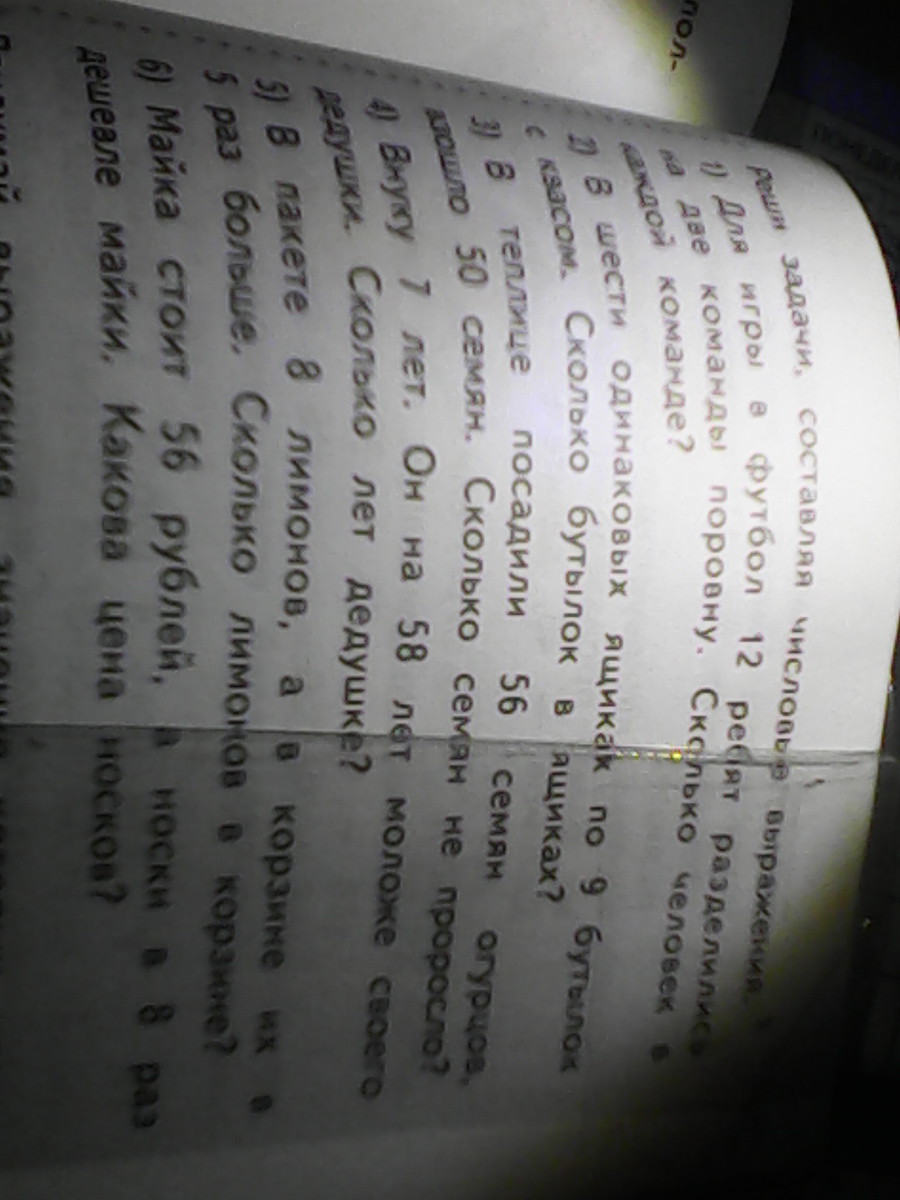 пол-
Реши задачи, составляя числовые выражения.
1) Для игры в футбол 12 ребят разделились
на две команды поровну. Сколько человек в
каждой команде?
2) В шести одинаковых ящиках по 9 бутылок
с квасом. Сколько бутылок в ящиках?
3) В теплице посадили 56 семян огурцов,
взошло 50 семян. Сколько семян не проросло?
4) Внуку 7 лет. Он на 58 лет моложе своего
дедушки. Сколько лет дедушке?
5) В пакете 8 лимонов, а в корзине их в
5 раз больше. Сколько лимонов в корзине?
6) Майка стоит 56 рублей, а носки в 8 раз
дешевле майки. Какова цена носков?